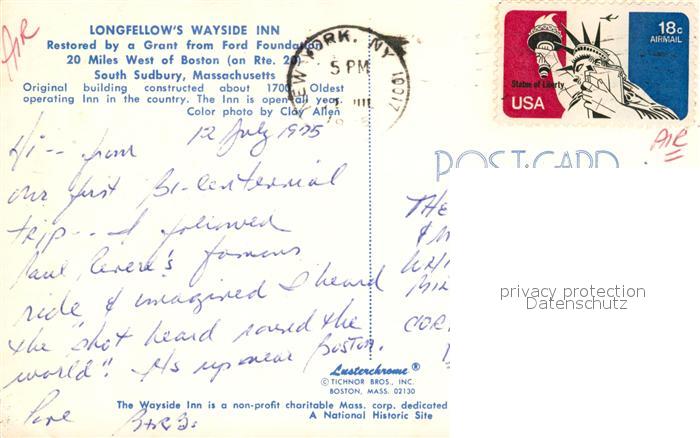 LONGFELLOW'S WAYSIDE INN
Restored by a Grant from Ford Foundation
20 Miles West of Boston (on Rte. 20)
South Sudbury, Massachusetts
Original building constructed about 1700. Oldest
operating Inn in the country. The Inn is open all year.
Color photo by Clay Allen
AIR
NEW YORK, NY 10017
5 PM
18c
AIRMAIL
Statue of Liberty
USA
AIR
POST CARD
12 July 1975
Hi -- from
our first Bi-centennial
trip -- I followed
Paul Revere's famous
ride & imagined I heard
the "shot heard round the
world". It's up near Boston.
THE
&
COR
privacy protection
Datenschutz
Lusterchrome®
© TICHNOR BROS., INC.
BOSTON, MASS. 02130
The Wayside Inn is a non-profit charitable Mass. corp. dedicated
A National Historic Site